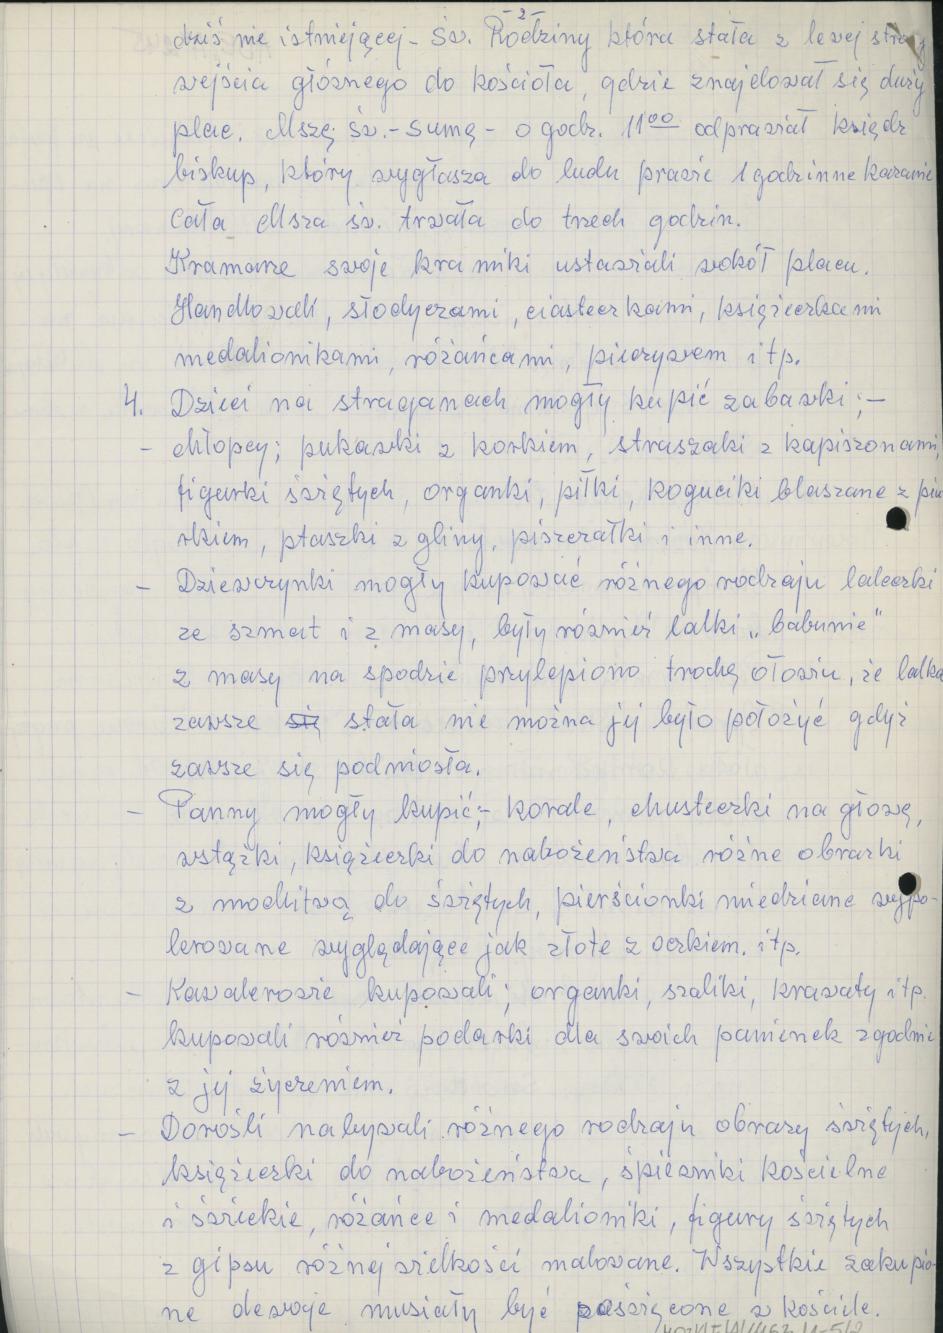 - 2 -
dziś nie istniejącej - Św. Rodziny która stała z lewej strony
wejścia głównego do kościoła, gdzie znajdował się duży
plac. Mszę św. - Sumę - o godz. 11⁰⁰ odprawiał ksiądz
biskup, który wygłasza do ludu prawie 1 godzinne kazanie
Cała Msza św. trwała do trzech godzin.
Kramarze swoje kramiki ustawiali wokół placu.
Handlowali, słodyczami, ciasteczkami, książeczkami
medalionikami, różańcami, pieczywem itp.
4. Dzieci na straganach mogły kupić zabawki; -
- chłopcy; pukawki z korkiem, straszaki z kapiszonami,
figurki świętych, organki, piłki, koguciki blaszane z piu
rkiem, ptaszki z gliny, piszczałki i inne.
- Dziewczynki mogły kupować różnego rodzaju laleczki
ze szmat i z masy, były również lalki „babunie"
z masy na spodzie przylepiono trochę ołowiu, że lalka
zawsze się stała nie można jej było położyć gdyż
zawsze się podniosła.
- Panny mogły kupić; - korale, chusteczki na głowę,
wstążki, książeczki do nabożeństwa różne obrazki
z modlitwą do świętych, pierścionki miedziane wypo-
lerowane wyglądające jak złote z oczkiem. itp.
- Kawalerowie kupowali; organki, szaliki, krawaty itp.
kupowali również podarki dla swoich panienek zgodnie
z jej życzeniem.
- Dorośli nabywali różnego rodzaju obrazy świętych,
książeczki do nabożeństwa, śpiewniki kościelne
i świeckie, różańce i medalioniki, figury świętych
z gipsu różnej wielkości malowane. Wszystkie zakupio-
ne dewocje musiały być poświęcone w kościele.